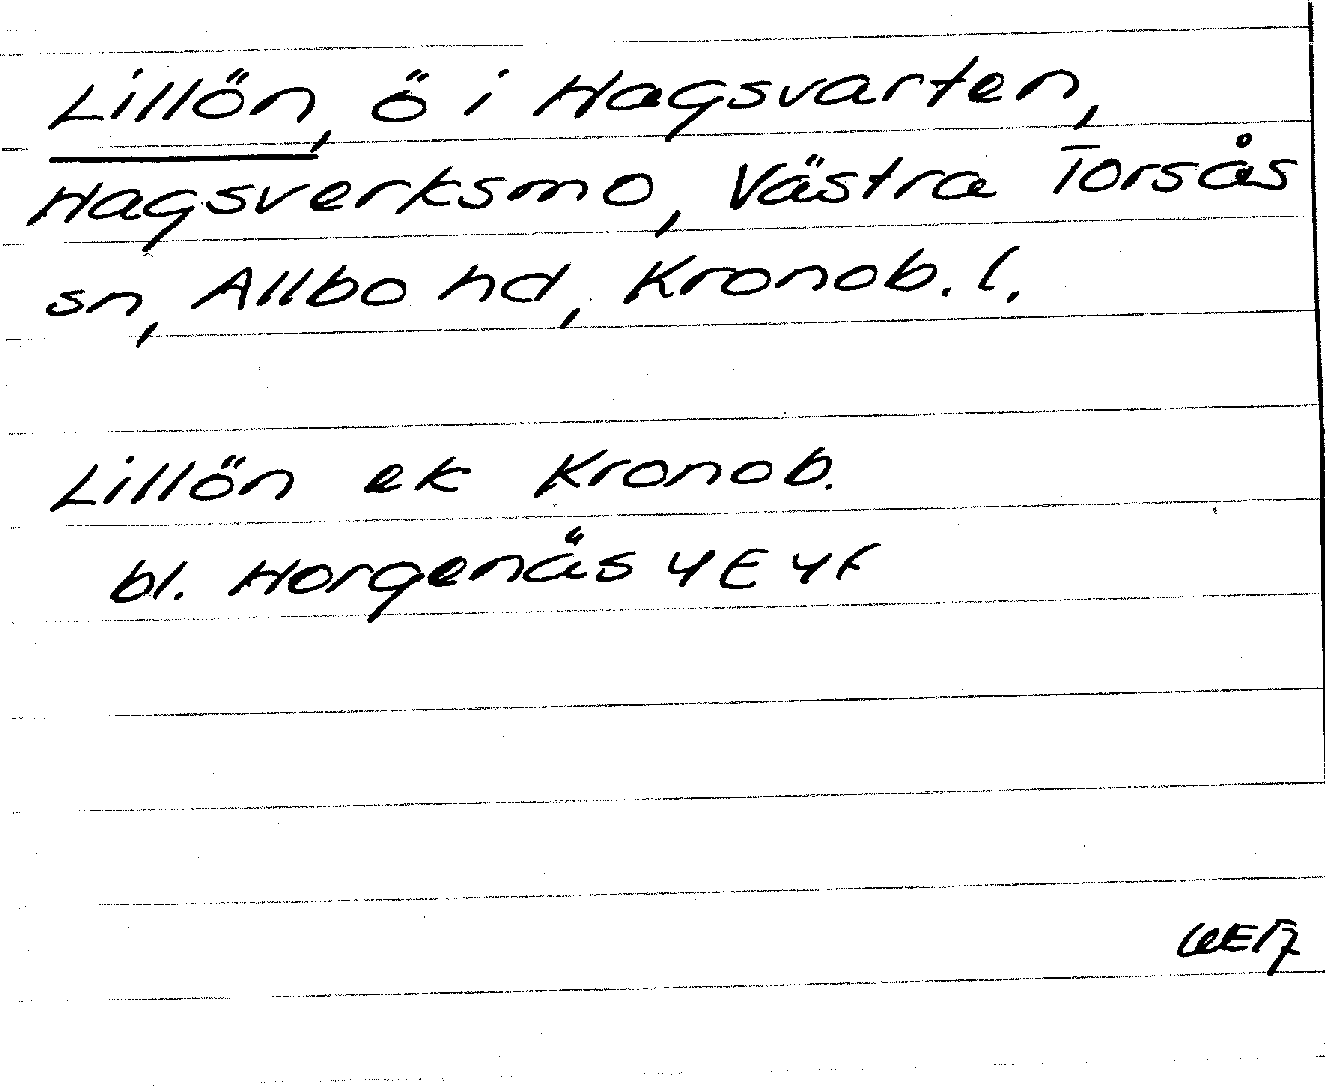 Lillön, ö i Hagsvarten,
Hagsverksmo, Västra Torsås
sn, Allbo hd, Kronob. l.
Lillön ek Kronob.
bl. Horgenäs 4E 4f